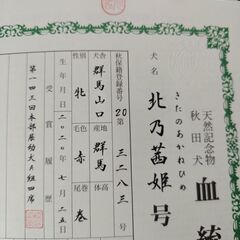 天然記念物
秋田犬
血統
犬名
きたのあかねひめ
北乃茜姫号
秋保籍登録番号
20第三二八三号
犬舎
群馬山口
産地
群馬
体高
性別
牝
毛色
赤
尾巻
巻
生年月日
二〇二〇年七月二五日
受賞履歴
第一四三回本部展幼犬A組四席